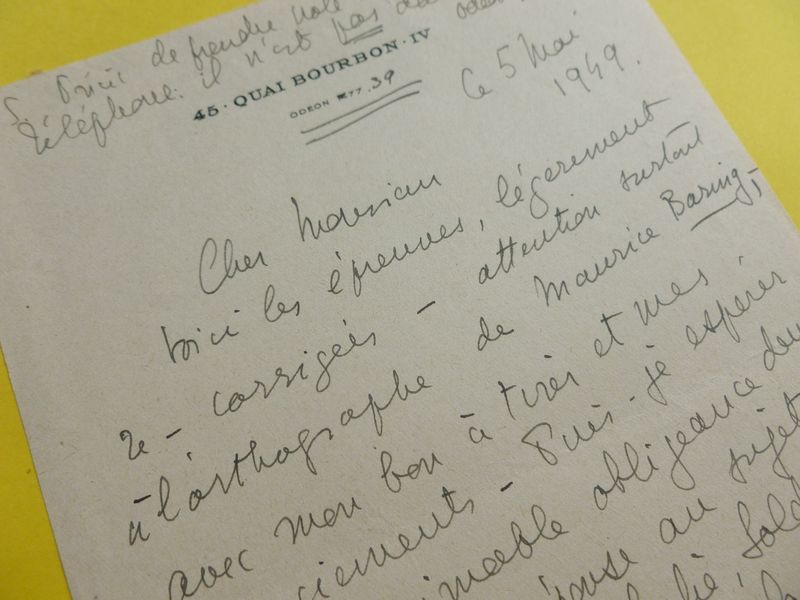 S. Prière de prendre note
téléphone: il n'est pas dans
45 · QUAI BOURBON · IV
ODEON 77.39
Ce 5 Mai
1949.
Cher Monsieur
Voici les épreuves, légèrement
re-corrigées - attention surtout
à l'orthographe de Maurice Baring,
avec mon bon à tirer et mes
ciements - Puis-je espérer
imable obligeance de
ponse au sujet